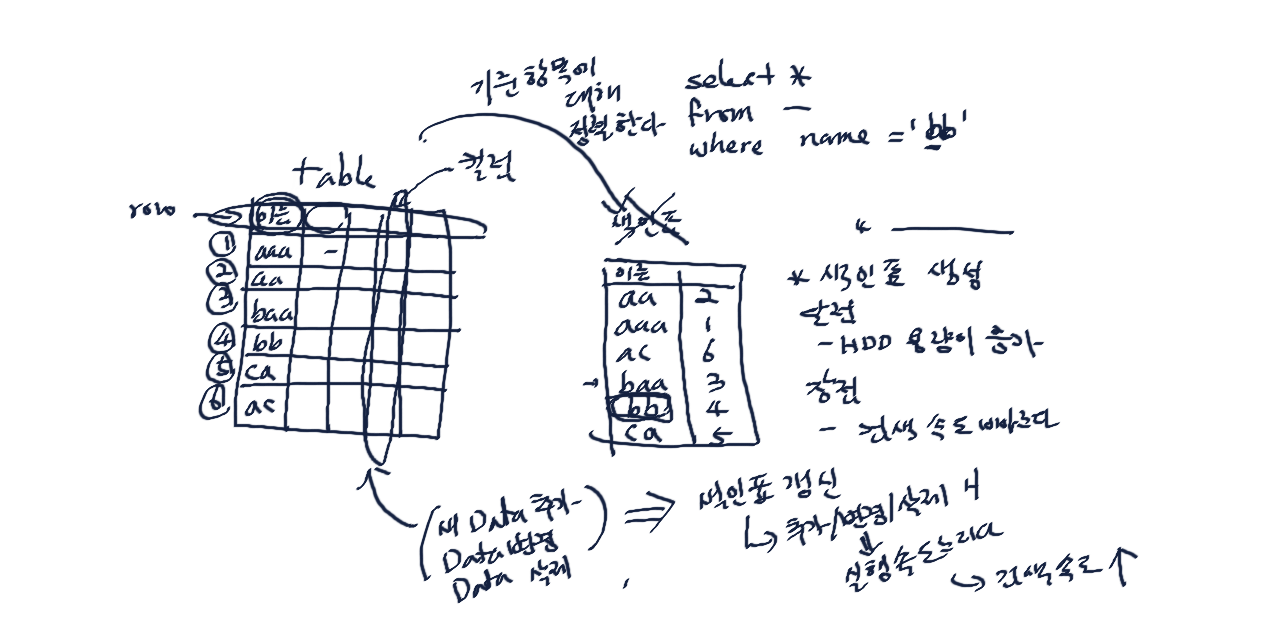 기준항목에
대해
정렬한다
select *
from —
where name = 'bb'
table
컬럼
row
이름
① aaa -
② aa
③ baa
④ bb
⑤ ca
⑥ ac
색인표
이름
aa 2
aaa 1
ac 6
baa 3
bb 4
ca 5
* 색인표 생성
단점
- HDD 용량이 증가
장점
- 검색 속도 빠르다
(새 Data 추가
Data변경
Data 삭제)
⇒ 색인표 갱신
↳ 추가/변경/삭제 시
실행속도느리다
↳ 검색속도↑